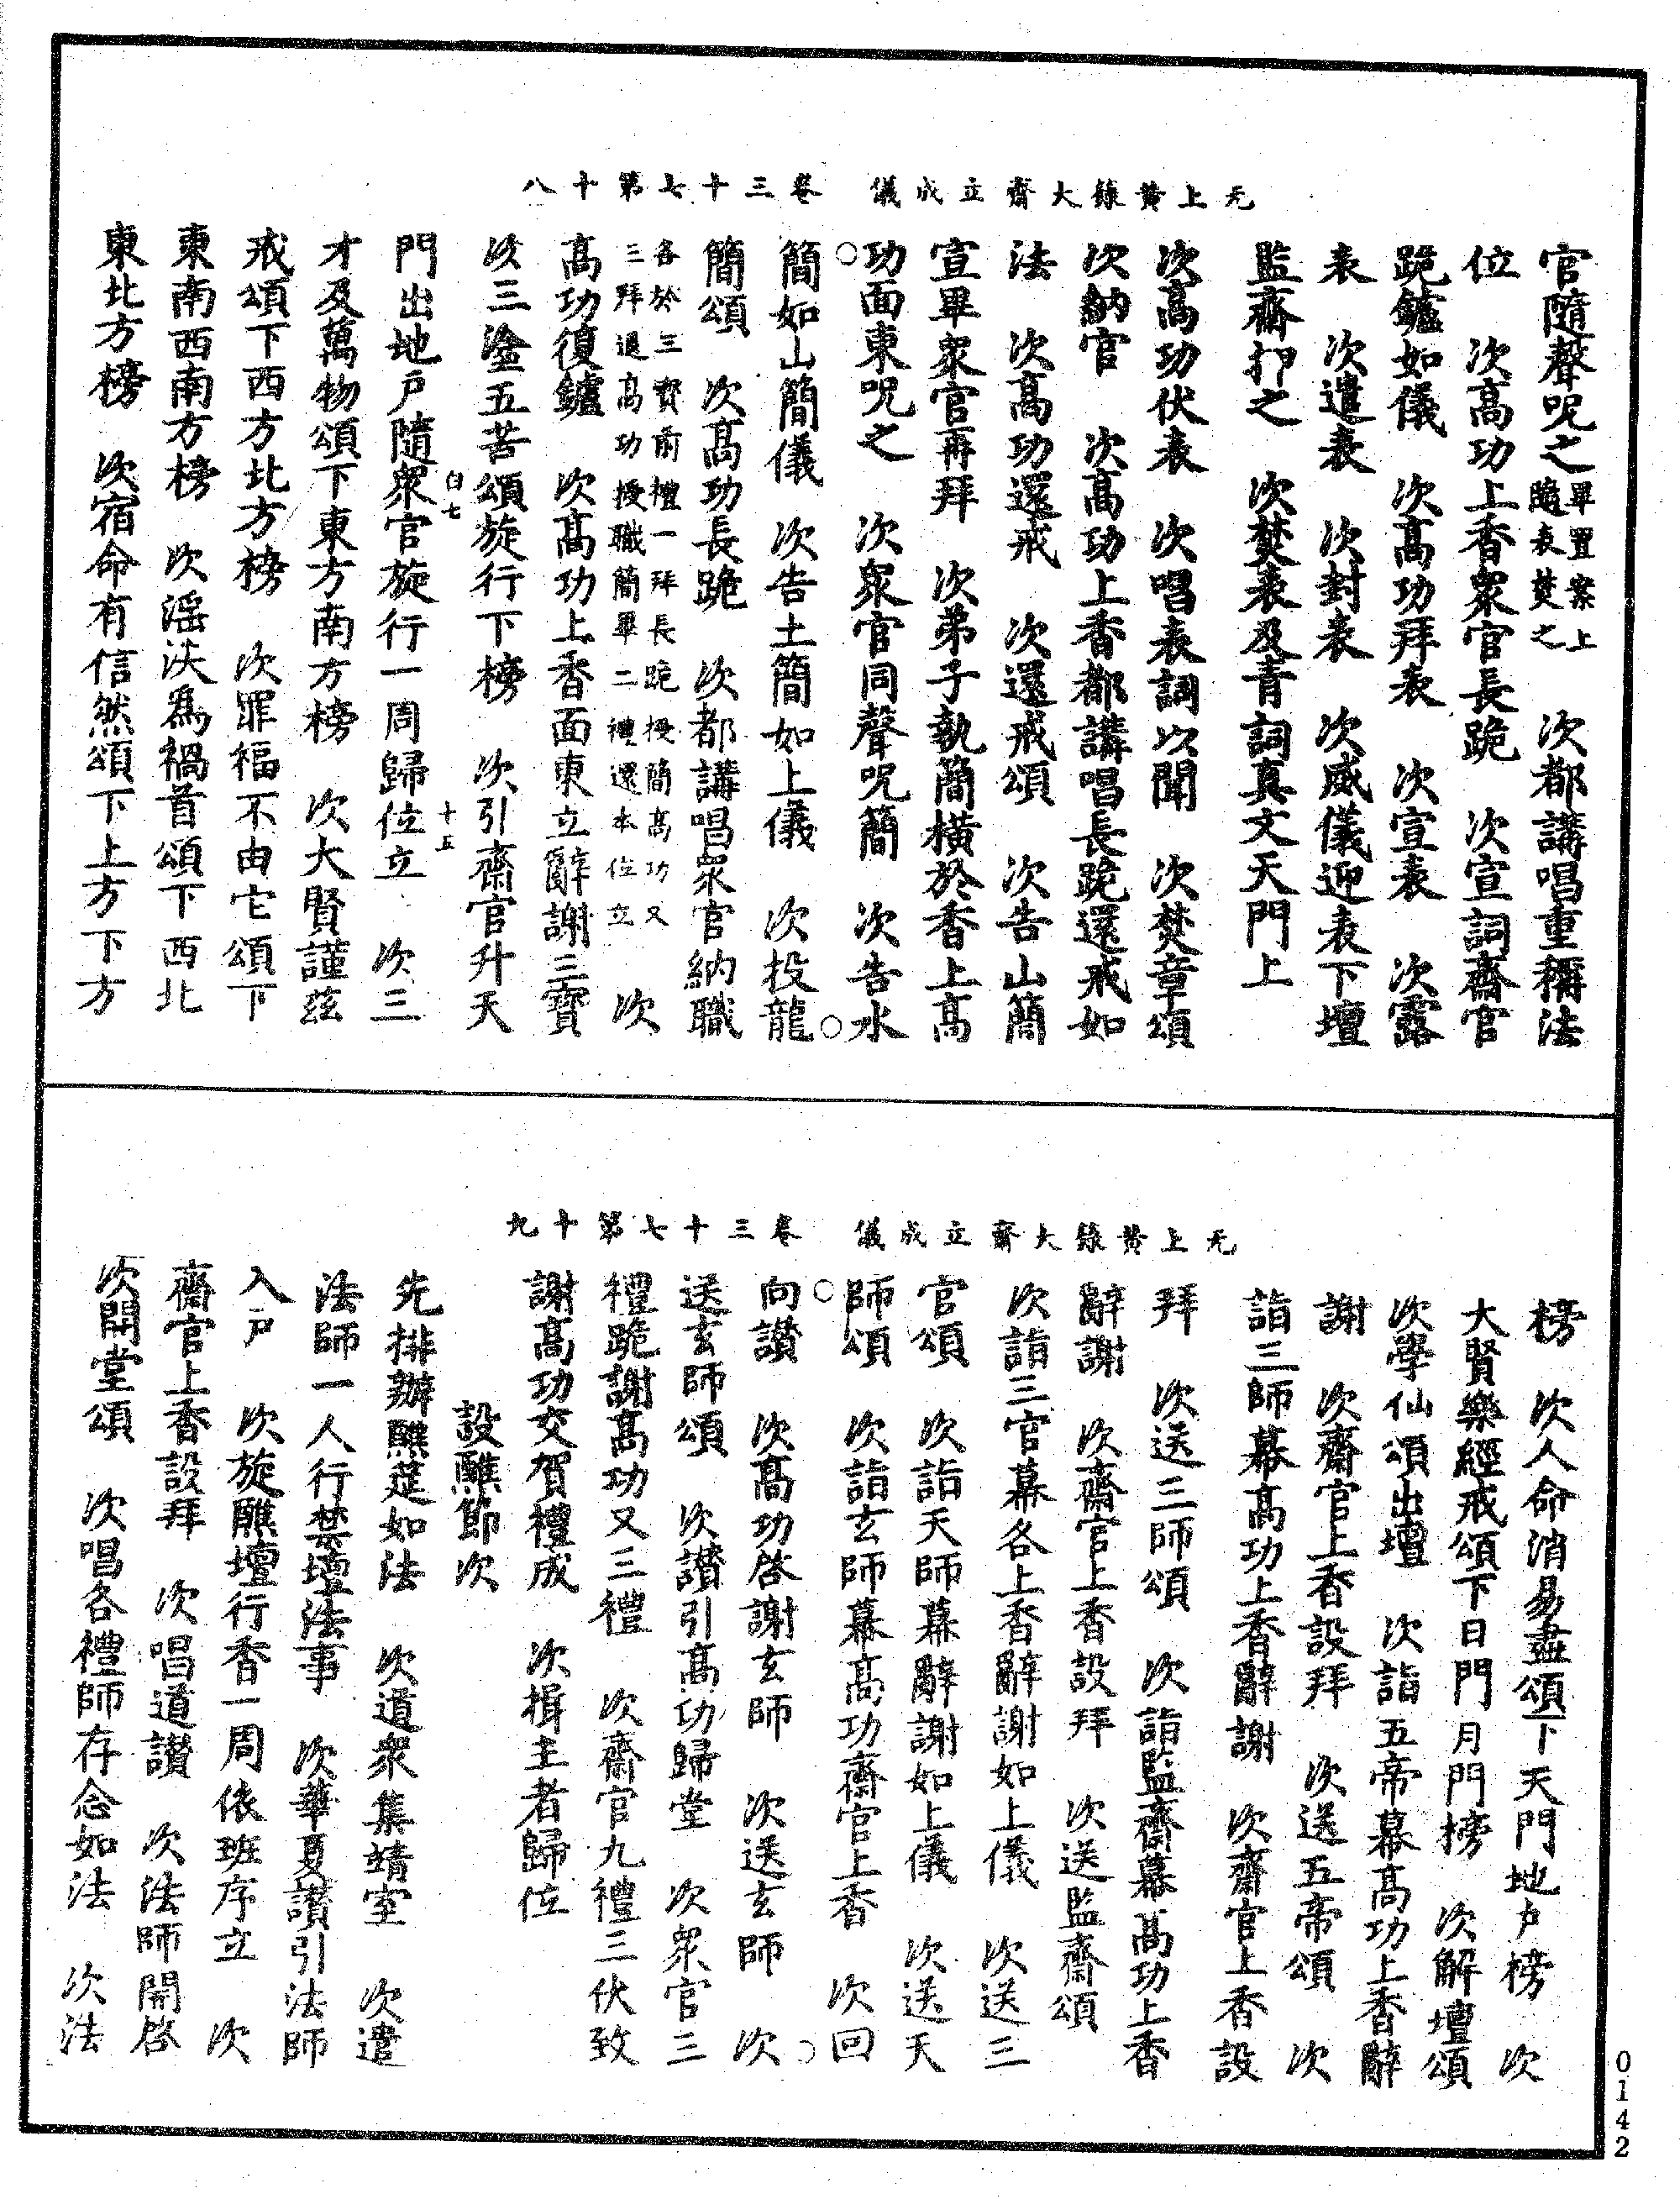 无上黃籙大齋立成儀　卷三十七第十八
官隨聲呪之畢置案上隨表焚之　次都講唱重稱法
位　次高功上香衆官長跪　次宣詞齋官
跪鑪如儀　次高功拜表　次宣表　次露
表　次遣表　次封表　次威儀迎表下壇
監齋押之　次焚表及青詞真文天門上
次高功伏表　次唱表詞以聞　次焚章頌
次納官　次高功上香都講唱長跪還戒如
法　次高功還戒　次還戒頌　次告山簡
宣畢衆官再拜　次弟子執簡橫於香上高
功面東呪之　次衆官同聲呪簡　次告水
簡如山簡儀　次告土簡如上儀　次投龍
簡頌　次高功長跪　次都講唱衆官納職
各於三寶前禮一拜長跪授簡高功又
三拜退高功授職簡畢二禮還本位立　次
高功復鑪　次高功上香面東立辭謝三寶
次三塗五苦頌旋行下榜　次引齋官升天
門出地戶隨衆官旋行一周歸位立　次三
才及萬物頌下東方南方榜　次大賢謹茲
戒頌下西方北方榜　次罪福不由它頌下
東南西南方榜　次滛泆爲禍首頌下西北
東北方榜　次宿命有信然頌下上方下方
白七
十五
无上黃籙大齋立成儀　卷三十七第十九
榜　次人命消易盡頌下天門地戶榜　次
大賢樂經戒頌下日門月門榜　次解壇頌
次學仙頌出壇　次詣五帝幕高功上香辭
謝　次齋官上香設拜　次送五帝頌　次
詣三師幕高功上香辭謝　次齋官上香設
拜　次送三師頌　次詣監齋幕高功上香
辭謝　次齋官上香設拜　次送監齋頌
次詣三官幕各上香辭謝如上儀　次送三
官頌　次詣天師幕辭謝如上儀　次送天
師頌　次詣玄師幕高功齋官上香　次回
向讚　次高功啓謝玄師　次送玄師　次
送玄師頌　次讚引高功歸堂　次衆官三
禮跪謝高功又三禮　次齋官九禮三伏致
謝高功交賀禮成　次揖主者歸位
設醮節次
先排辦醮筵如法　次道衆集靖室　次遣
法師一人行禁壇法事　次華夏讚引法師
入戶　次旋醮壇行香一周依班序立　次
齋官上香設拜　次唱道讚　次法師開啓
次開堂頌　次唱各禮師存念如法　次法
0142